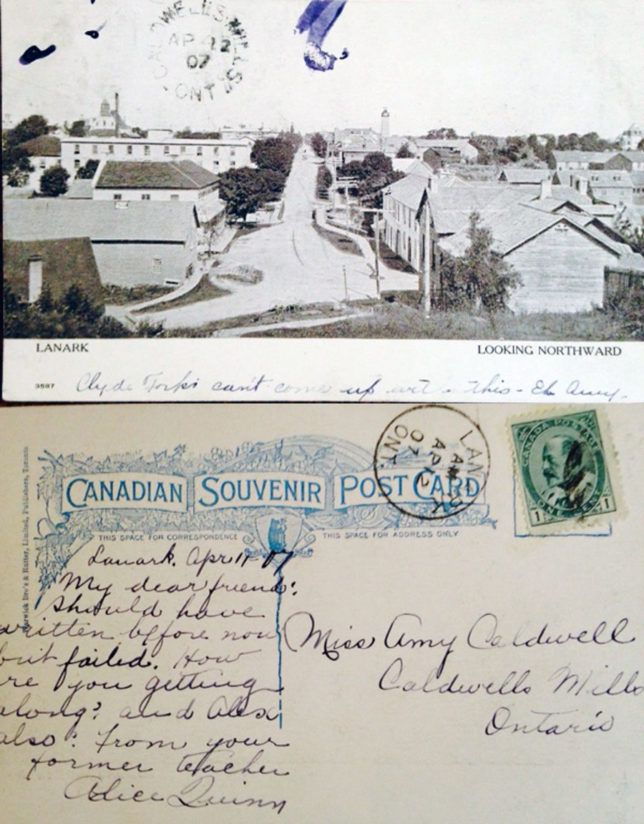 CALDWELLS MILLS
AP 12
07
ONT
LANARK
LOOKING NORTHWARD
3587
Clyde Forks can't come up with this - Eh Amy.
LANARK
AM
AP 12
07
ONT.
CANADA POSTAGE
1 1
CANADIAN SOUVENIR POST CARD
THIS SPACE FOR CORRESPONDENCE THIS SPACE FOR ADDRESS ONLY
Warwick Bro's & Rutter, Limited, Publishers, Toronto
Lanark. Apr 11-07
My dear friend:
Should have
written before now
but failed. How
are you getting
along? and Alex
also? From your
former teacher
Alice Quinn
Miss Amy Caldwell
Caldwells Mills
Ontario